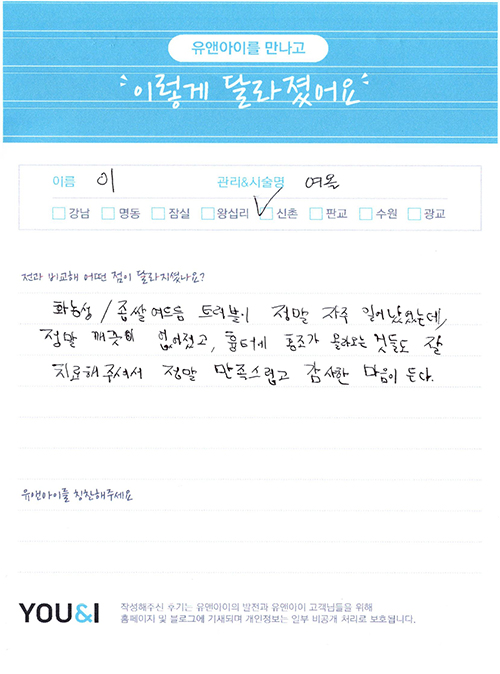 유앤아이를 만나고
이렇게 달라졌어요
이름 이 관리&시술명 여울
강남 명동 잠실 왕십리 신촌 판교 수원 광교
전과 비교해 어떤 점이 달라지셨나요?
화농성 / 좁쌀여드름 트러블이 정말 자주 일어났었는데,
정말 깨끗이 없어졌고, 흉터에 홍조가 올라오는 것들도 잘
치료해주셔서 정말 만족스럽고 감사한 마음이 든다.
유앤아이를 칭찬해주세요
YOU&I
작성해주신 후기는 유앤아이의 발전과 유앤아이 고객님들을 위해
홈페이지 및 블로그에 기재되며 개인정보는 일부 비공개 처리로 보호됩니다.